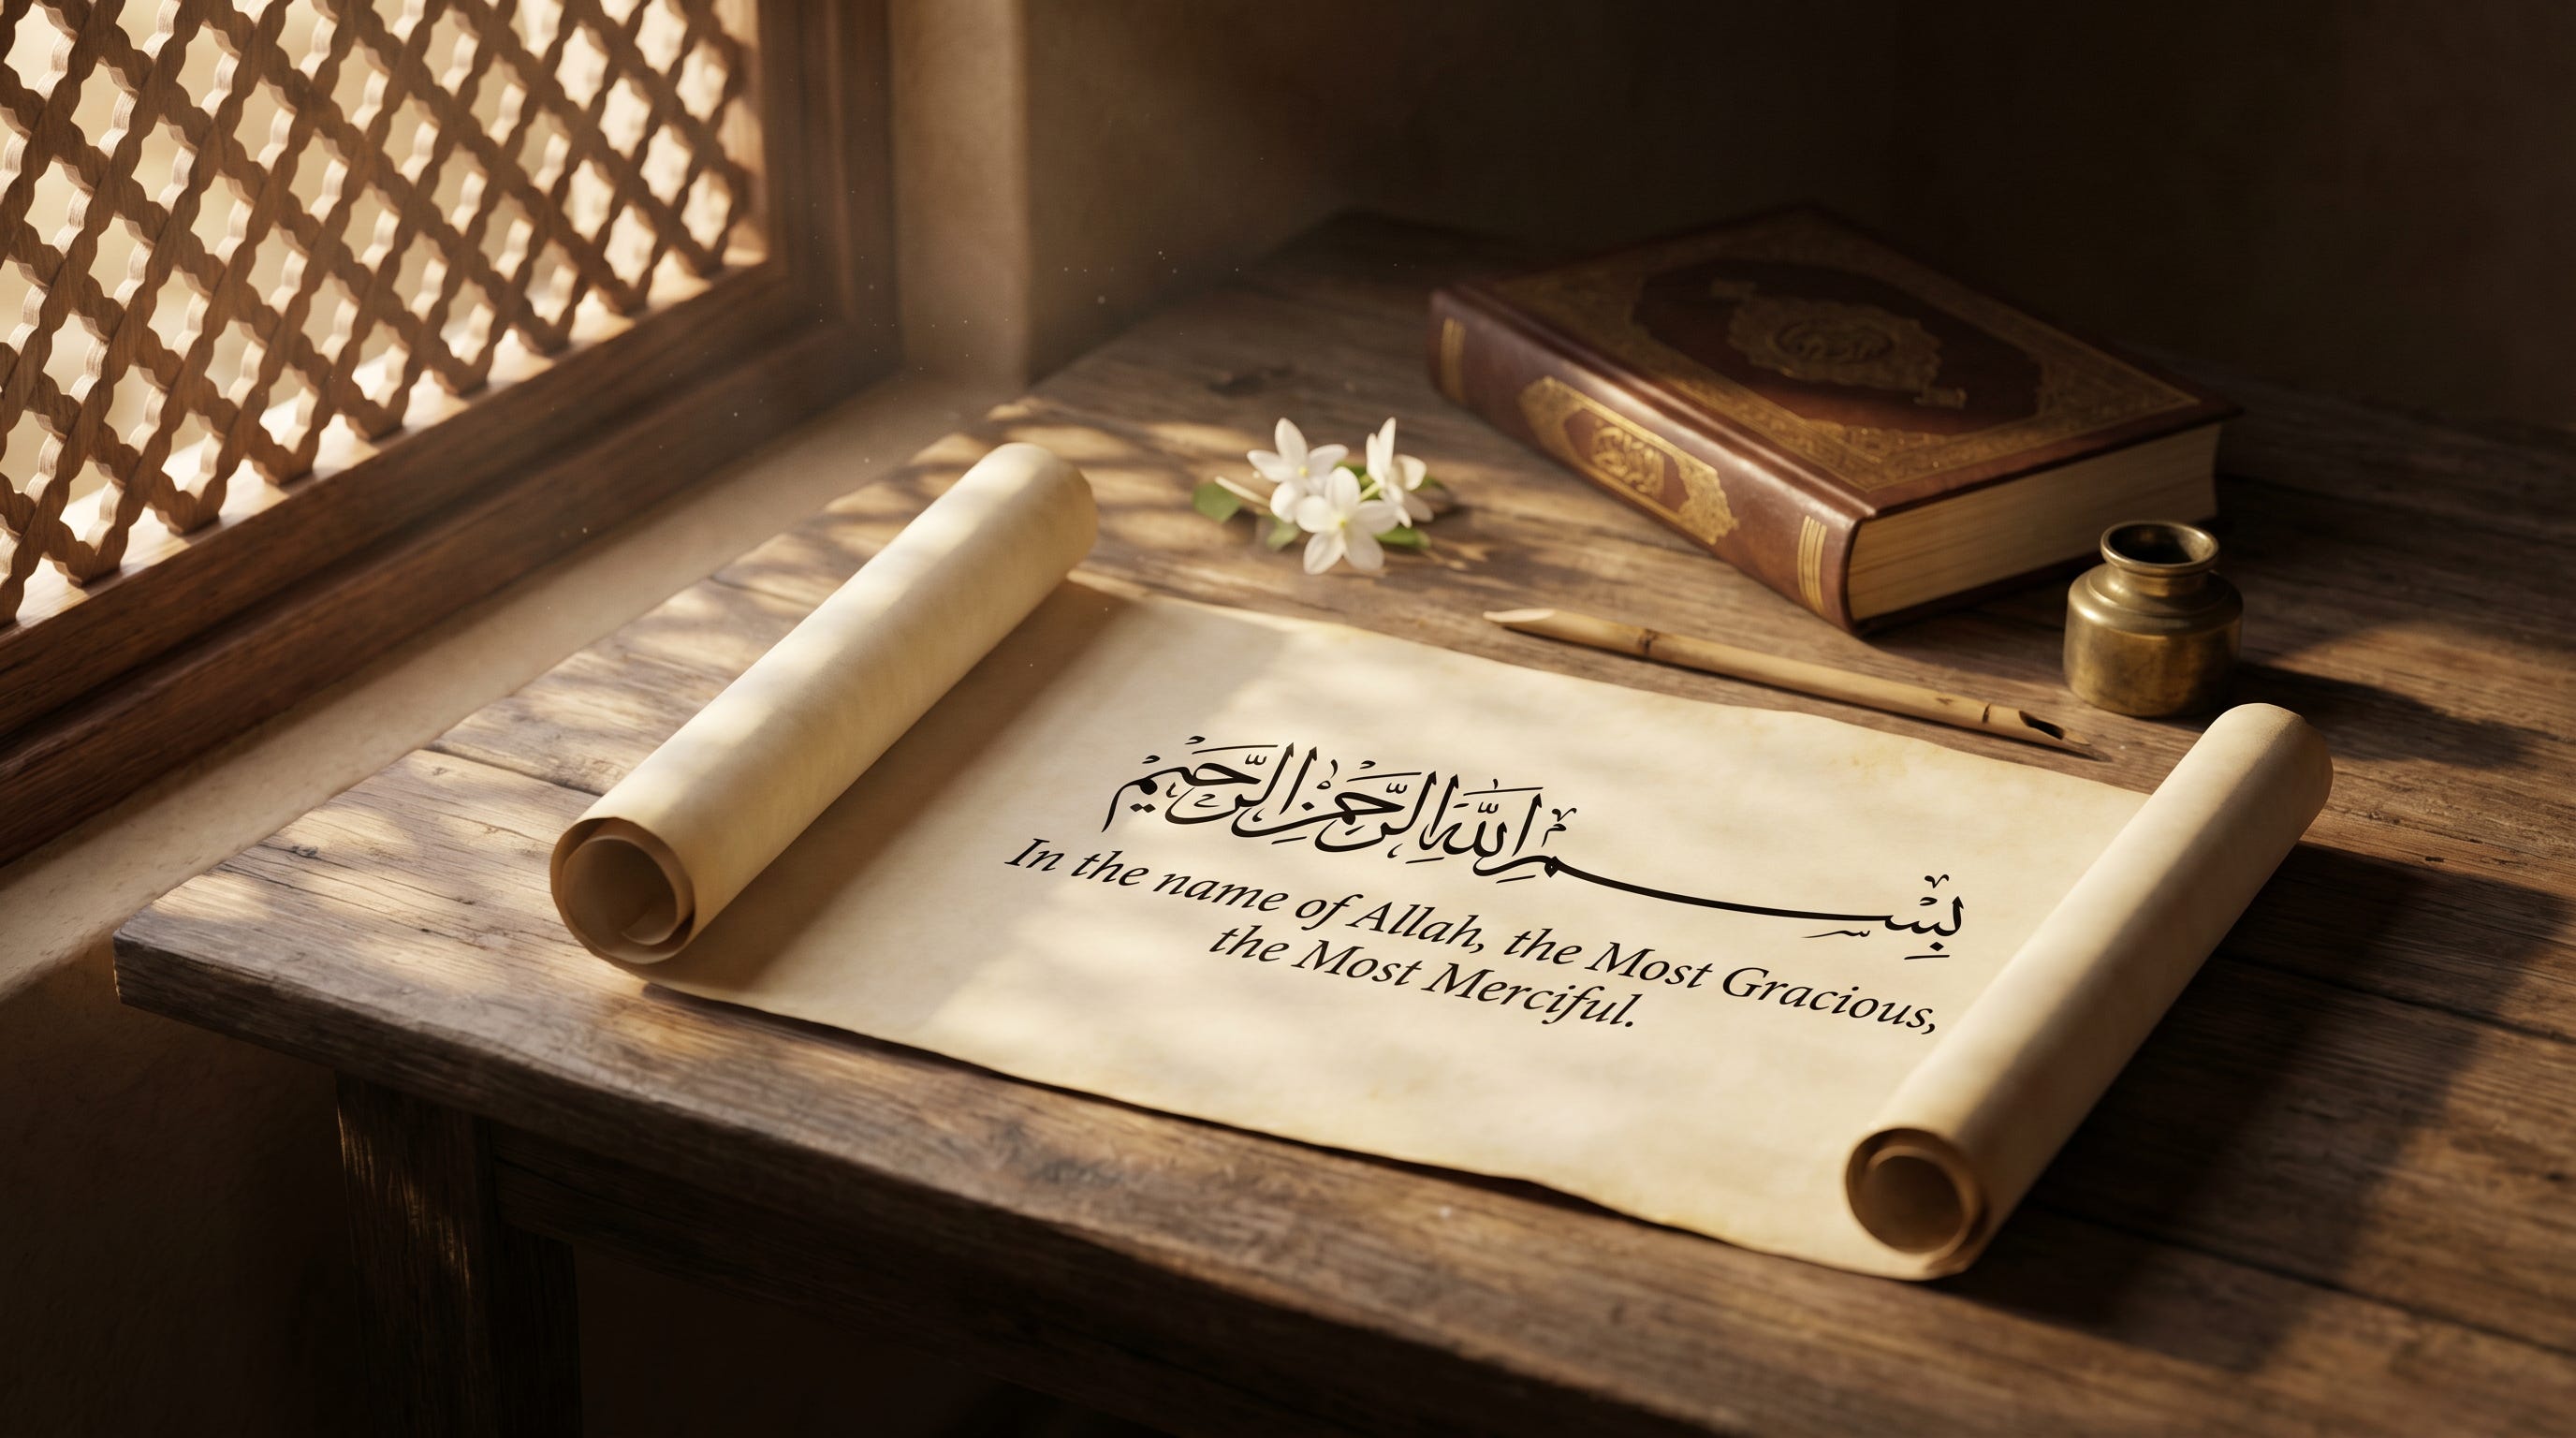 بِسْمِ اللَّهِ الرَّحْمَٰنِ الرَّحِيمِ
In the name of Allah, the Most Gracious,
the Most Merciful.